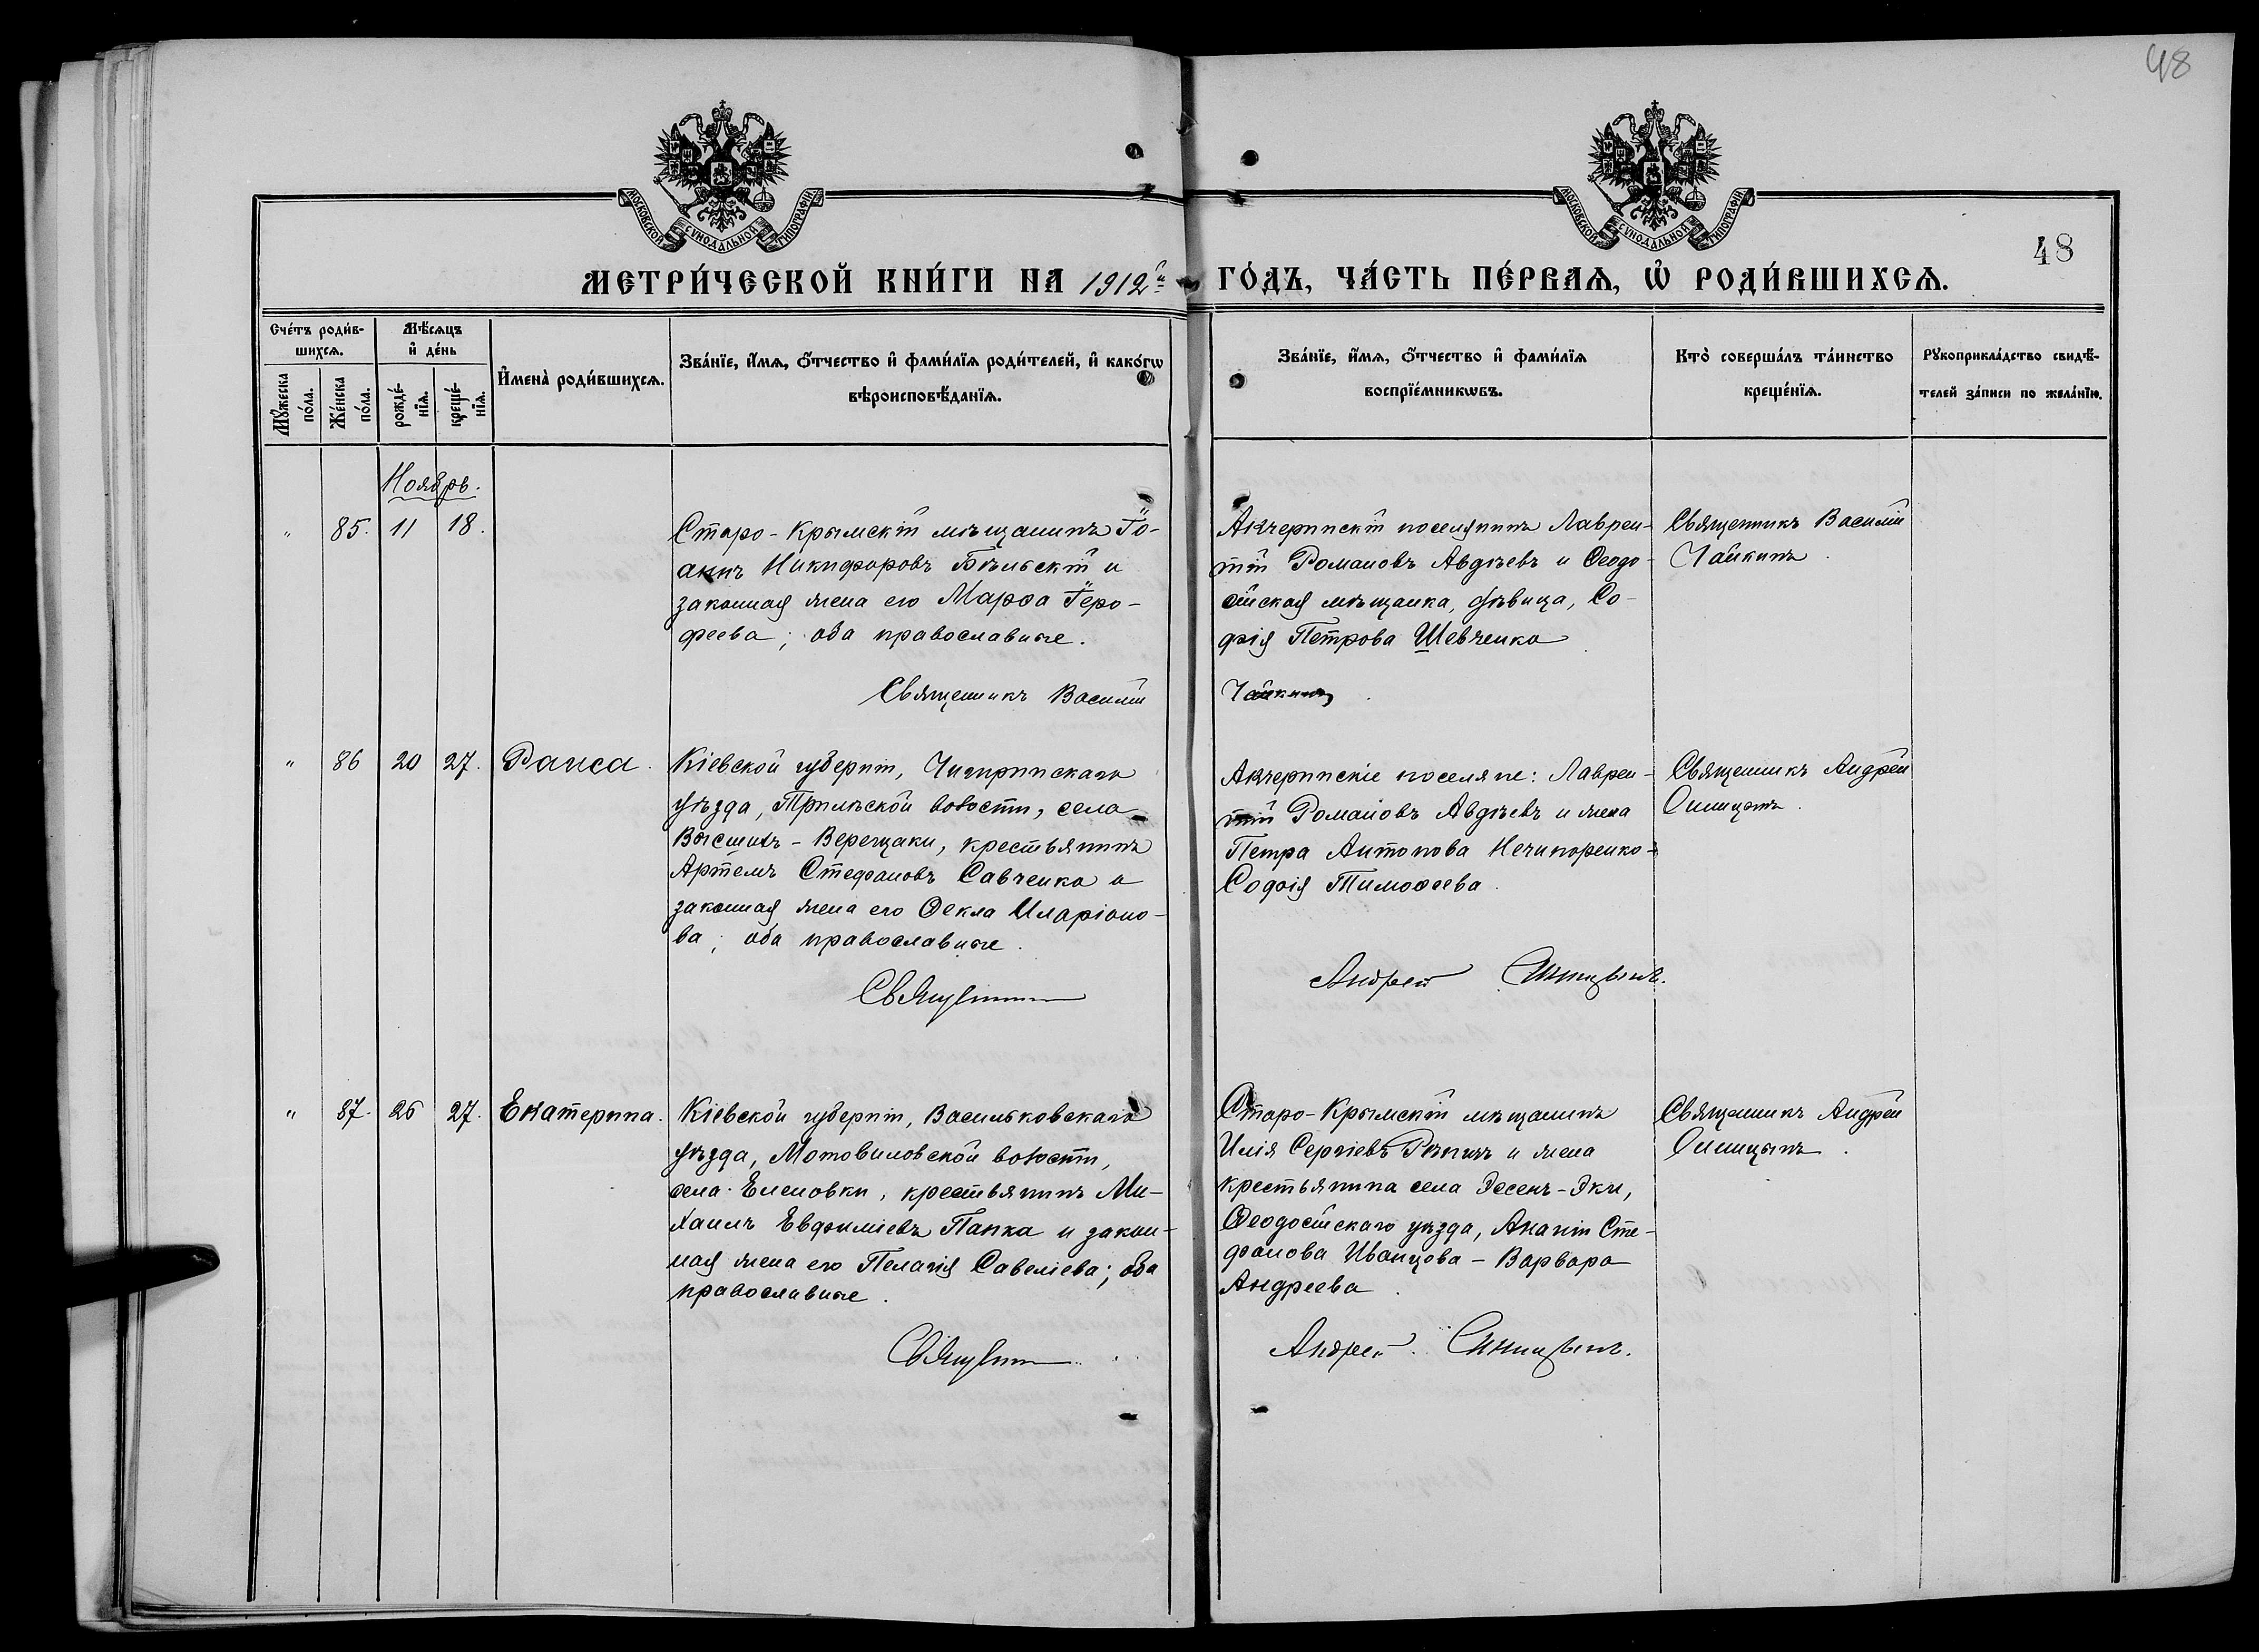 48
МОСКОВСКОЙ СУНОДАЛЬНОЙ ТИПОГРАФІИ.
МОСКОВСКОЙ СУНОДАЛЬНОЙ ТИПОГРАФІИ.
48
МЕТРИ́ЧЕСКОЙ КНИ́ГИ НА 1912й ГО́ДЪ, ЧА́СТЬ ПЕ́РВАѦ, Ѽ РОДИ́ВШИХСѦ.
Сче́тъ роди́в-
шихсѧ.
Мꙋ́жеска
по́ла.
Же́нска
по́ла.
Мѣ́сѧцъ
и҆ де́нь
рожде́-
нїѧ.
креще́-
нїѧ.
И҆мена̀ роди́вшихсѧ.
Зва́нїе, и҆́мѧ, ѻ҆́тчество и҆ фами́лїѧ роди́телей, и҆ како́гѡ
вѣроисповѣ́данїѧ.
Зва́нїе, и҆́мѧ, ѻ҆́тчество и҆ фами́лїѧ
воспрїе́мникѡвъ.
Кто̀ соверша́лъ та́инство
креще́нїѧ.
Рꙋкоприкла́дство свидѣ́-
телей за́писи по жела́нїю.
Ноябрь.
" 85. 11 18.
Старо-Крымскій мѣщанинъ Іо-
аннъ Никифоровъ Бѣльскій и
законная жена его Марѳа Іеро-
феева; оба православные.
Священникъ Василій
Акчеринскій поселянинъ Лаврен-
тій Романовъ Авдѣевъ и Ѳеодо-
сійская мѣщанка, дѣвица, Со-
фія Петрова Шевченко
Чайкинъ
Священникъ Василій
Чайкинъ.
" 86 20 27. Раиса.
Кіевской губерніи, Чигиринскаго
уѣзда, Трилѣской волости, села
Высшихъ-Верещаки, крестьянинъ
Артемъ Стефановъ Савченко и
законная жена его Ѳекла Иларіоно-
ва; оба православные.
Священникъ
Акчеринскіе поселяне: Лаврен-
тій Романовъ Авдѣевъ и жена
Петра Антонова Нечипоренко-
Софія Тимоѳеева.
Андрей Синицынъ.
Священникъ Андрей
Синицынъ.
" 87. 26 27. Екатерина.
Кіевской губерніи, Васильковскаго
уѣзда, Мотовиловской волости,
села Еленовки, крестьянинъ Ми-
хаилъ Евфиміевъ Папка и закон-
ная жена его Пелагія Савеліева; оба
православные.
Священникъ
Старо-Крымскій мѣщанинъ
Илія Сергіевъ Рѣпинъ и жена
крестьянина села Эссенъ-Эки,
Ѳеодосійскаго уѣзда, Ананіи Сте-
фанова Иванцова - Варвара
Андреева.
Андрей Синицынъ.
Священникъ Андрей
Синицынъ.